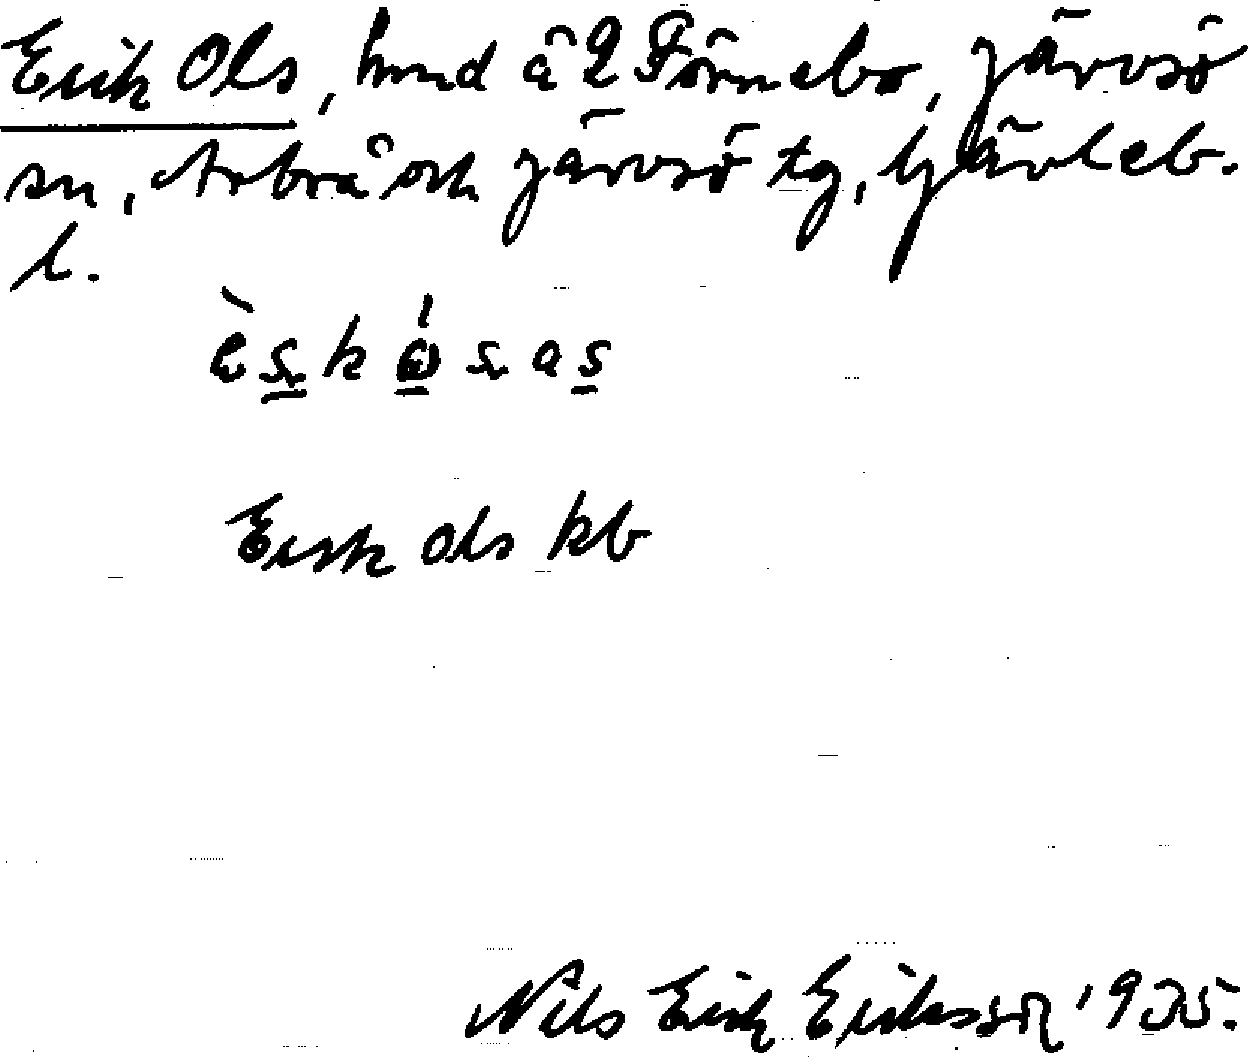 Erik Ols, hmd å 2 Förnebo, Järvsö
sn, Arbrå och Järvsö tg, Gävleb.
l.
Erik Ols kb
Nils Erik Eriksson 1935.